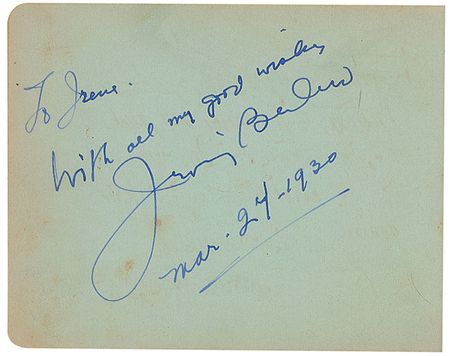 To Irene.
With all my good wishes
Irving Berlin
Mar. 24-1930